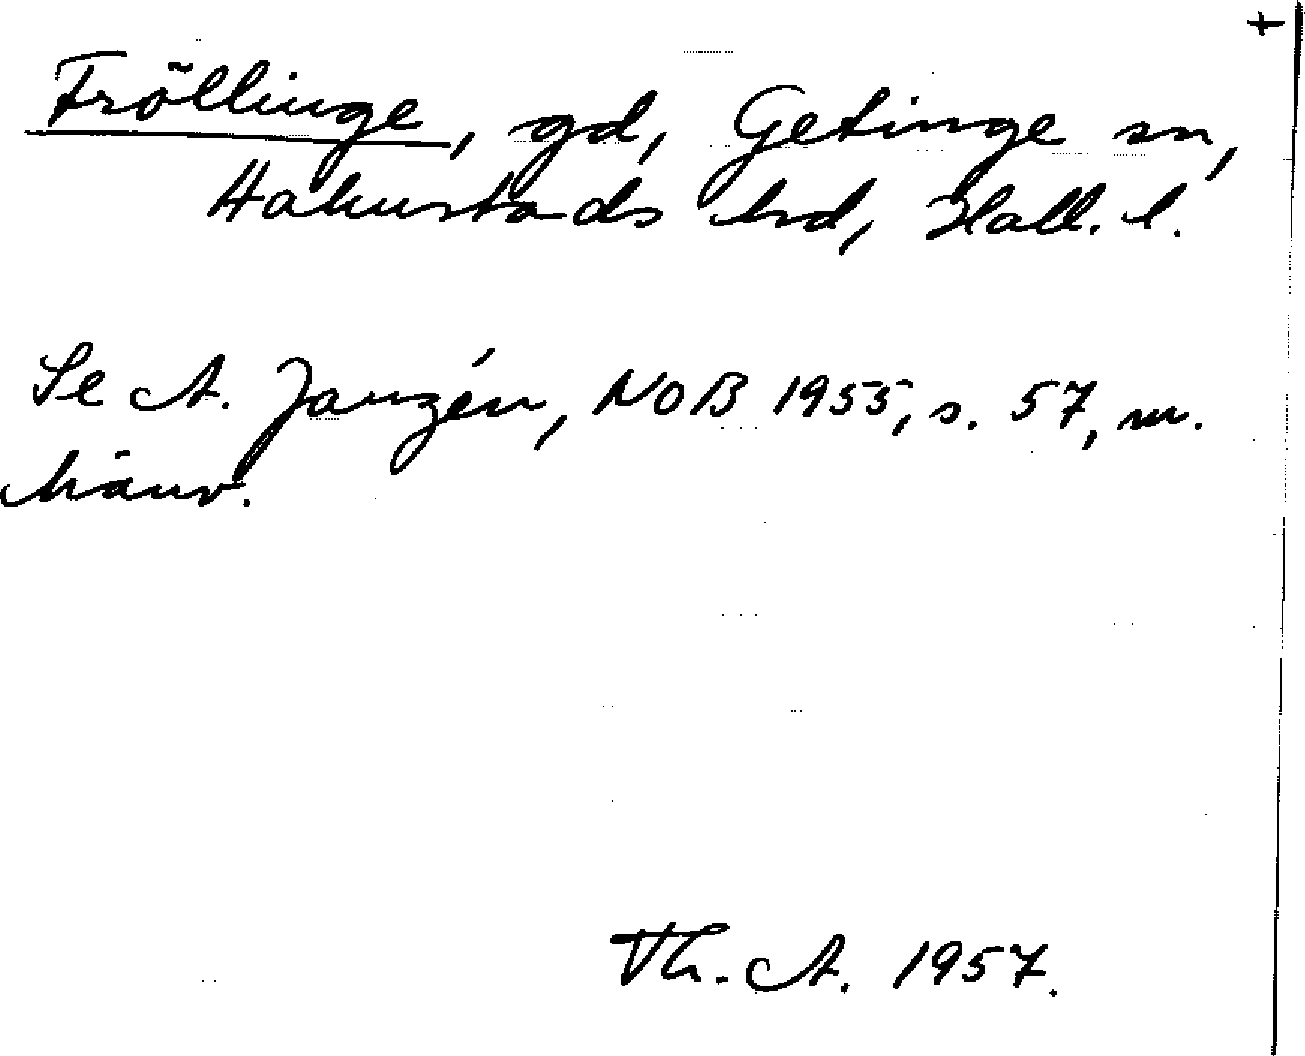 +
Fröllinge, gd, Getinge sn,
Halmstads hrd, Hall. l.
Se A. Janzén, NOB 1955, s. 57, m.
hänv.
Th. A. 1957.